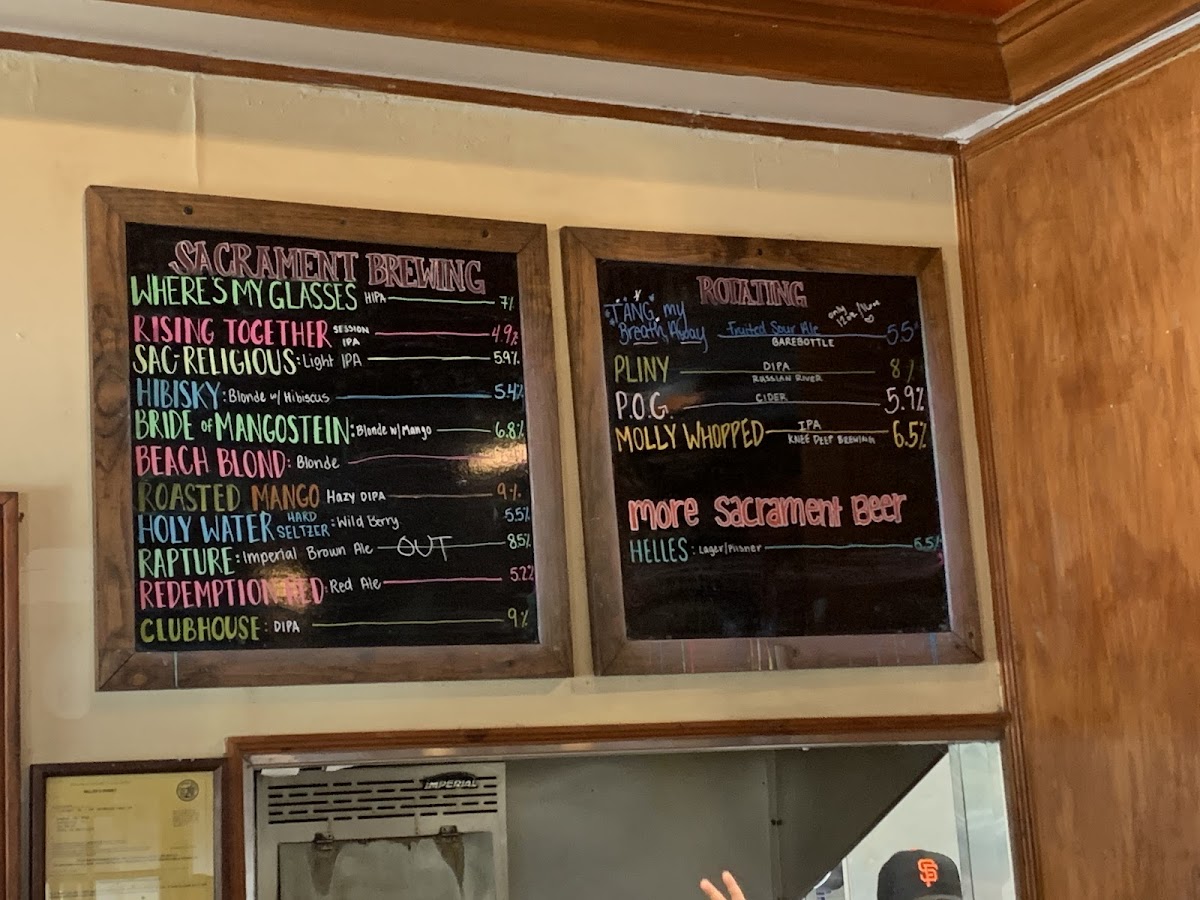 SACRAMENT BREWING
WHERE'S MY GLASSES HIPA 7%
RISING TOGETHER SESSION IPA 4.9%
SAC-RELIGIOUS: Light IPA 5.9%
HIBISKY: Blonde w/ Hibiscus 5.4%
BRIDE OF MANGOSTEIN: Blonde w/ Mango 6.8%
BEACH BLOND: Blonde
ROASTED MANGO Hazy DIPA 9%
HOLY WATER HARD SELTZER: Wild Berry 5.5%
RAPTURE: Imperial Brown Ale OUT 8.5%
REDEMPTION RED: Red Ale 5.2%
CLUBHOUSE: DIPA 9%
ROTATING
TANG my
Breath Away Fruited Sour Ale only 12oz 5.5%
BAREBOTTLE
PLINY DIPA 8%
RUSSIAN RIVER
P.O.G. CIDER 5.9%
MOLLY WHOPPED IPA 6.5%
KNEE DEEP BREWING
more Sacrament Beer
HELLES: Lager/Pilsner
IMPERIAL
SF